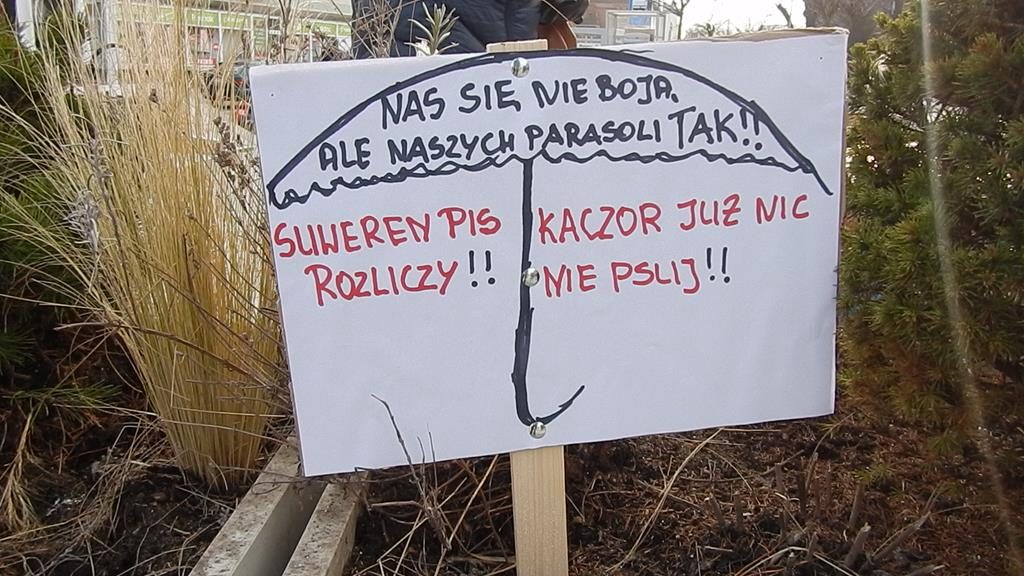 NAS SIĘ NIE BOJĄ.
ALE NASZYCH PARASOLI TAK!!
SUWEREN PIS
ROZLICZY!!
KACZOR JUŻ NIC
NIE PSUJ!!